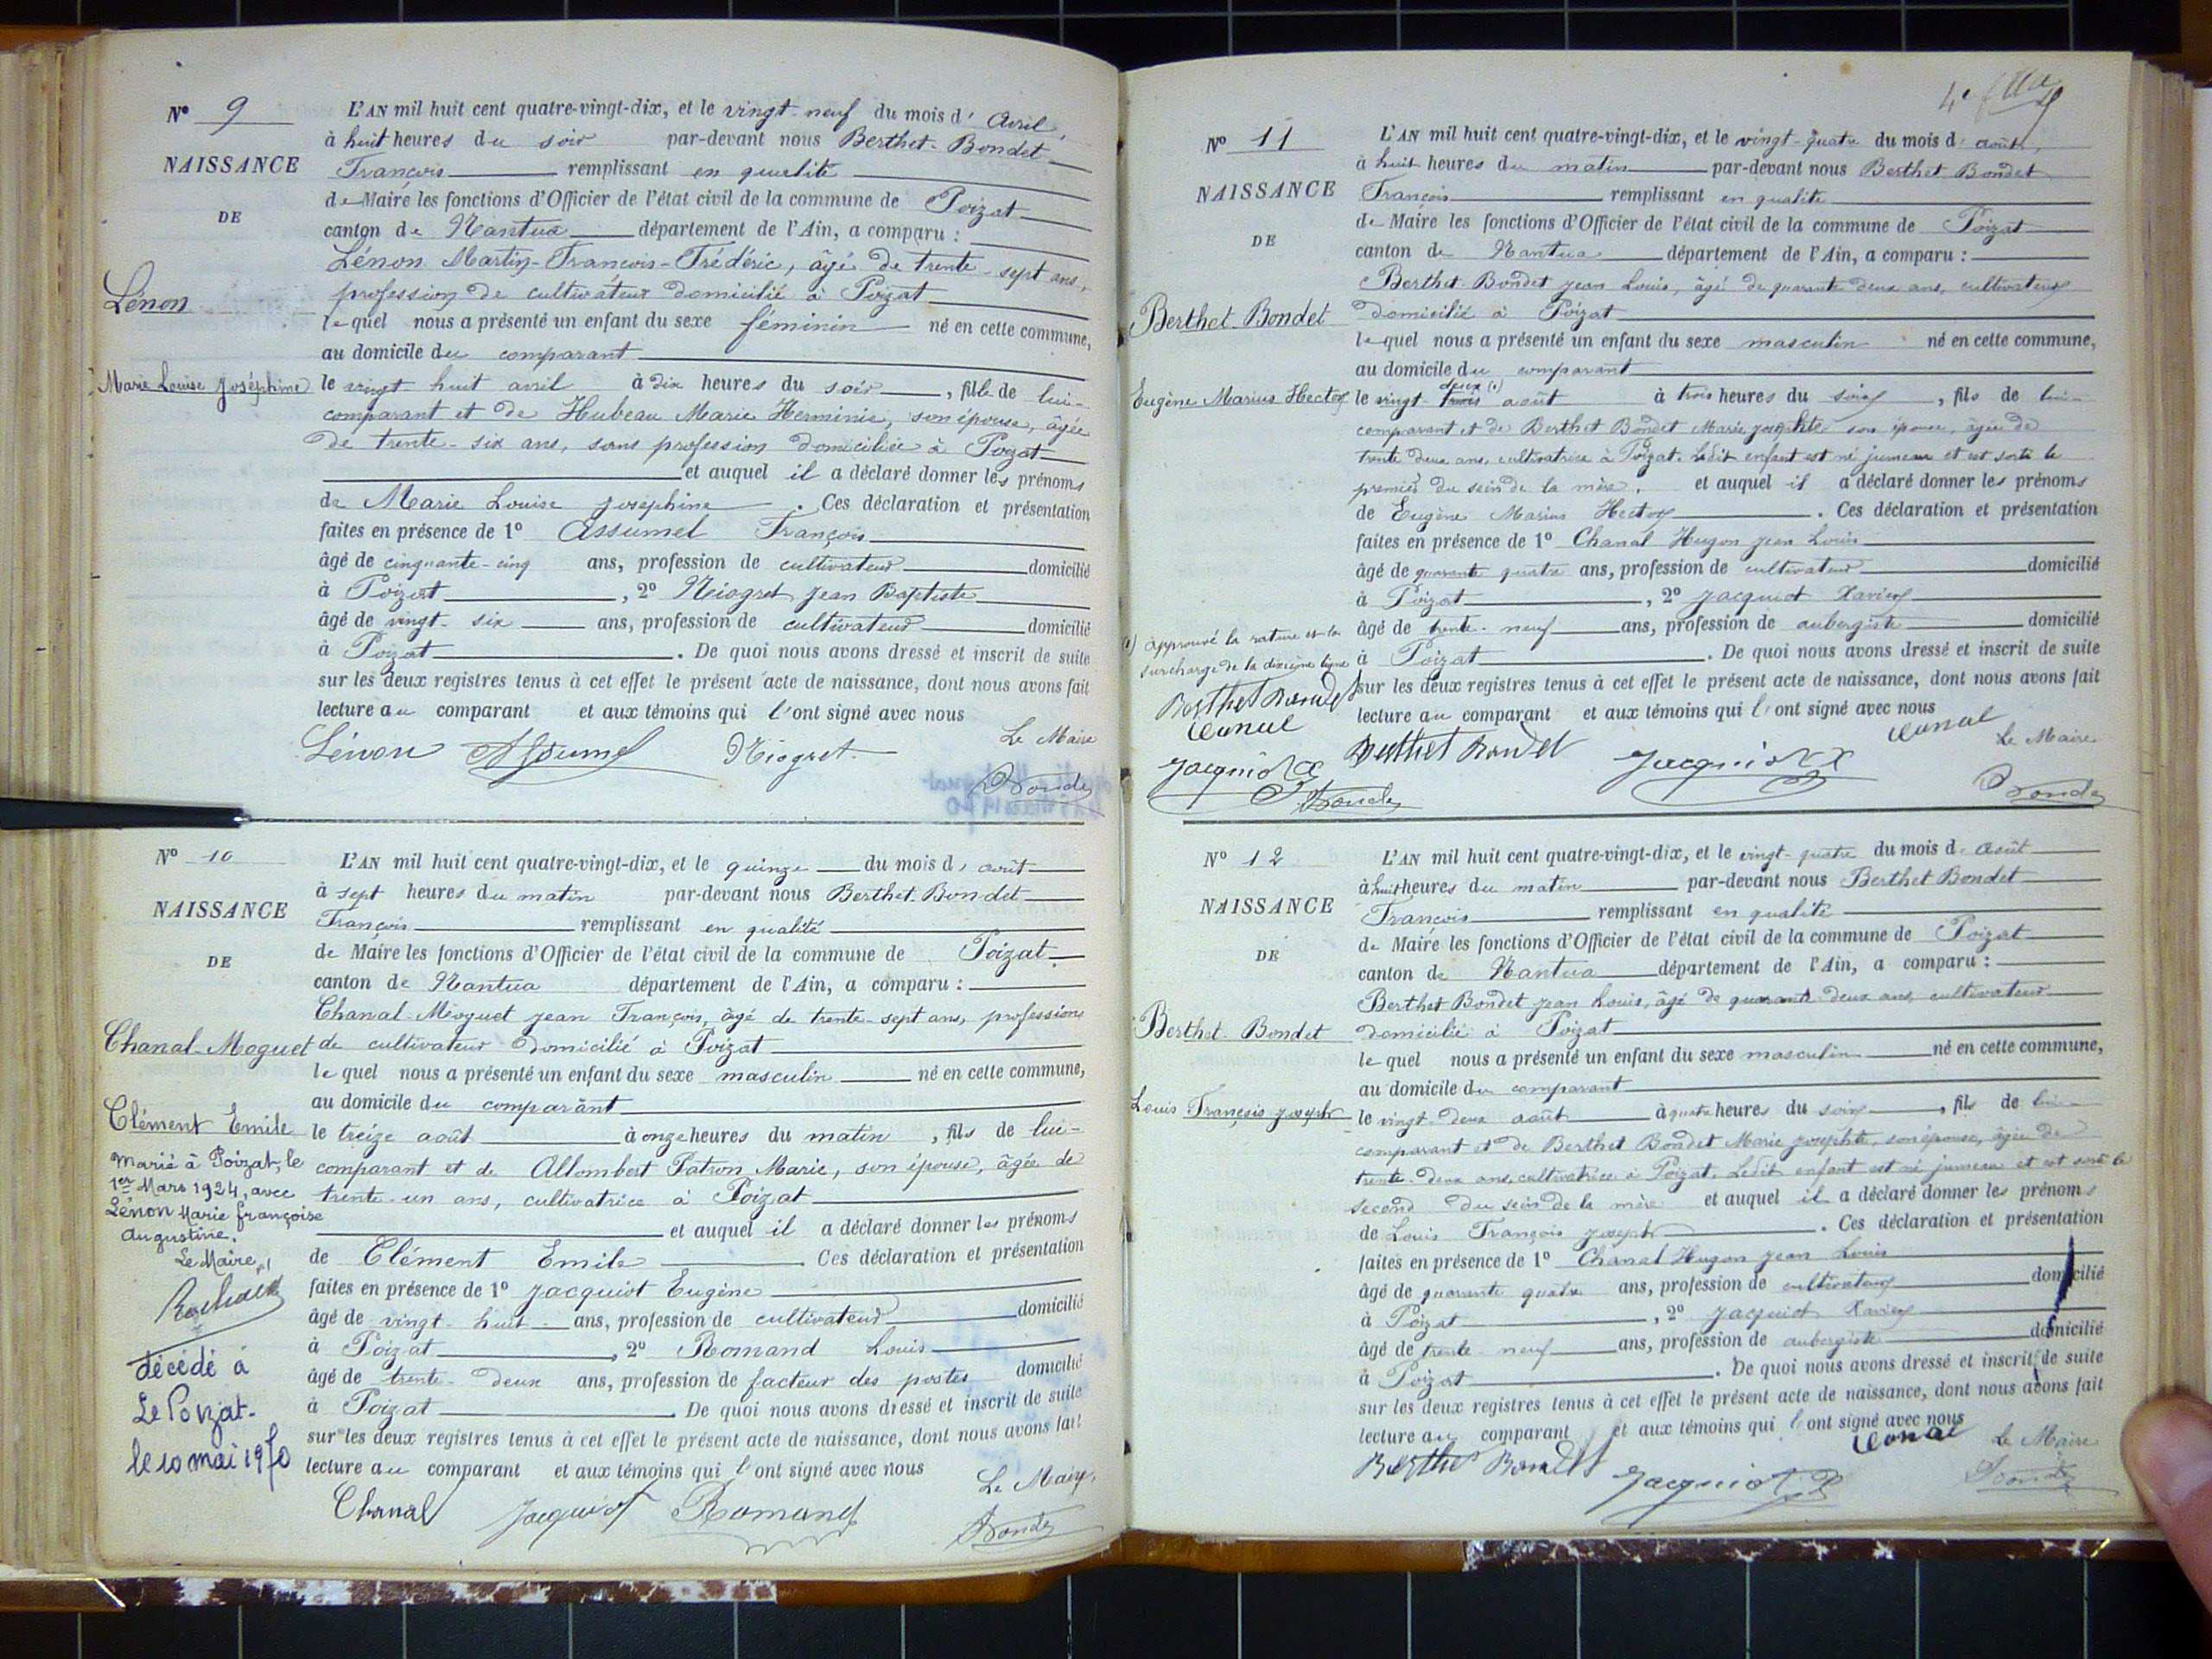 N° 9
NAISSANCE
DE
Lénon
Marie Louise Joséphine
L'AN mil huit cent quatre-vingt-dix, et le vingt-neuf du mois d' Avril,
à huit heures du soir par-devant nous Berthet-Bondet
François remplissant en qualité
de Maire les fonctions d'Officier de l'état civil de la commune de Poizat
canton de Nantua département de l'Ain, a comparu :
Lénon Martin-François-Frédéric, âgé de trente-sept ans,
profession de cultivateur domicilié à Poizat
lequel nous a présenté un enfant du sexe féminin né en cette commune,
au domicile du comparant
le vingt huit avril à dix heures du soir, fille de lui-
comparant et de Hubeau Marie Herminie, son épouse, âgée
de trente-six ans, sans profession domiciliée à Poizat
et auquel il a déclaré donner les prénoms
de Marie Louise Joséphine. Ces déclaration et présentation
faites en présence de 1° Assumel François
âgé de cinquante-cinq ans, profession de cultivateur domicilié
à Poizat, 2° Niogret Jean Baptiste
âgé de vingt-six ans, profession de cultivateur domicilié
à Poizat. De quoi nous avons dressé et inscrit de suite
sur les deux registres tenus à cet effet le présent acte de naissance, dont nous avons fait
lecture au comparant et aux témoins qui l'ont signé avec nous
Le Maire
Lénon Assumel Niogret
Bondet
N° 10
NAISSANCE
DE
Chanal-Moguet
Clément Emile
marié à Poizat, le
1er Mars 1924, avec
Lénon Marie françoise
Augustine.
Le Maire,
décédé à
Le Poizat
le 10 mai 1970
L'AN mil huit cent quatre-vingt-dix, et le quinze du mois d' août
à sept heures du matin par-devant nous Berthet-Bondet
François remplissant en qualité
de Maire les fonctions d'Officier de l'état civil de la commune de Poizat
canton de Nantua département de l'Ain, a comparu :
Chanal-Moguet Jean François, âgé de trente-sept ans, profession
de cultivateur domicilié à Poizat
lequel nous a présenté un enfant du sexe masculin né en cette commune,
au domicile du comparant
le treize août à onze heures du matin, fils de lui-
comparant et de Allombert Patron Marie, son épouse, âgée de
trente-un ans, cultivatrice à Poizat
et auquel il a déclaré donner les prénoms
de Clément Emile Ces déclaration et présentation
faites en présence de 1° Jacquiot Eugène
âgé de vingt-huit ans, profession de cultivateur domicilié
à Poizat, 2° Romand Louis
âgé de trente-deux ans, profession de facteur des postes domicilié
à Poizat. De quoi nous avons dressé et inscrit de suite
sur les deux registres tenus à cet effet le présent acte de naissance, dont nous avons fait
lecture au comparant et aux témoins qui l'ont signé avec nous
Le Maire,
Chanal Jacquiot Romand
Bondet
N° 11
NAISSANCE
DE
Berthet-Bondet
Eugène Marius Hector
(1) approuvé la rature et la
surcharge de la dixième ligne
Berthet Bondet
Chanal
Jacquiot X
Bondet
L'AN mil huit cent quatre-vingt-dix, et le vingt-quatre du mois d' août,
à huit heures du matin par-devant nous Berthet Bondet
François remplissant en qualité
de Maire les fonctions d'Officier de l'état civil de la commune de Poizat
canton de Nantua département de l'Ain, a comparu :
Berthet-Bondet Jean Louis, âgé de quarante deux ans, cultivateur
domicilié à Poizat
lequel nous a présenté un enfant du sexe masculin né en cette commune,
au domicile du comparant
deux (1)
le vingt-trois août à trois heures du soir, fils de lui-
comparant et de Berthet Bondet Marie Josephte son épouse, âgée de
trente deux ans, cultivatrice à Poizat. Ledit enfant est né jumeau et est sorti le
premier du sein de la mère. et auquel il a déclaré donner les prénoms
de Eugène Marius Hector. Ces déclaration et présentation
faites en présence de 1° Chanal Hugon Jean Louis
âgé de quarante quatre ans, profession de cultivateur domicilié
à Poizat, 2° Jacquiot Xavier
âgé de trente-neuf ans, profession de aubergiste domicilié
à Poizat. De quoi nous avons dressé et inscrit de suite
sur les deux registres tenus à cet effet le présent acte de naissance, dont nous avons fait
lecture au comparant et aux témoins qui l'ont signé avec nous
Chanal
Le Maire
Berthet Bondet Jacquiot X
Bondet
N° 12
NAISSANCE
DE
Berthet-Bondet
Louis François Joseph
L'AN mil huit cent quatre-vingt-dix, et le vingt-quatre du mois d' août
à huit heures du matin par-devant nous Berthet Bondet
François remplissant en qualité
de Maire les fonctions d'Officier de l'état civil de la commune de Poizat
canton de Nantua département de l'Ain, a comparu :
Berthet Bondet Jean Louis, âgé de quarante deux ans, cultivateur
domicilié à Poizat
lequel nous a présenté un enfant du sexe masculin né en cette commune,
au domicile du comparant
le vingt-deux août à quatre heures du soir, fils de lui-
comparant et de Berthet Bondet Marie Josephte, son épouse, âgée de
trente-deux ans, cultivatrice à Poizat. Ledit enfant est né jumeau et est sorti le
second du sein de la mère et auquel il a déclaré donner les prénoms
de Louis François Joseph. Ces déclaration et présentation
faites en présence de 1° Chanal Hugon Jean Louis
âgé de quarante quatre ans, profession de cultivateur domicilié
à Poizat, 2° Jacquiot Xavier
âgé de trente-neuf ans, profession de aubergiste domicilié
à Poizat. De quoi nous avons dressé et inscrit de suite
sur les deux registres tenus à cet effet le présent acte de naissance, dont nous avons fait
lecture au comparant et aux témoins qui l'ont signé avec nous
Chanal
Le Maire
Berthet Bondet Jacquiot X
Bondet